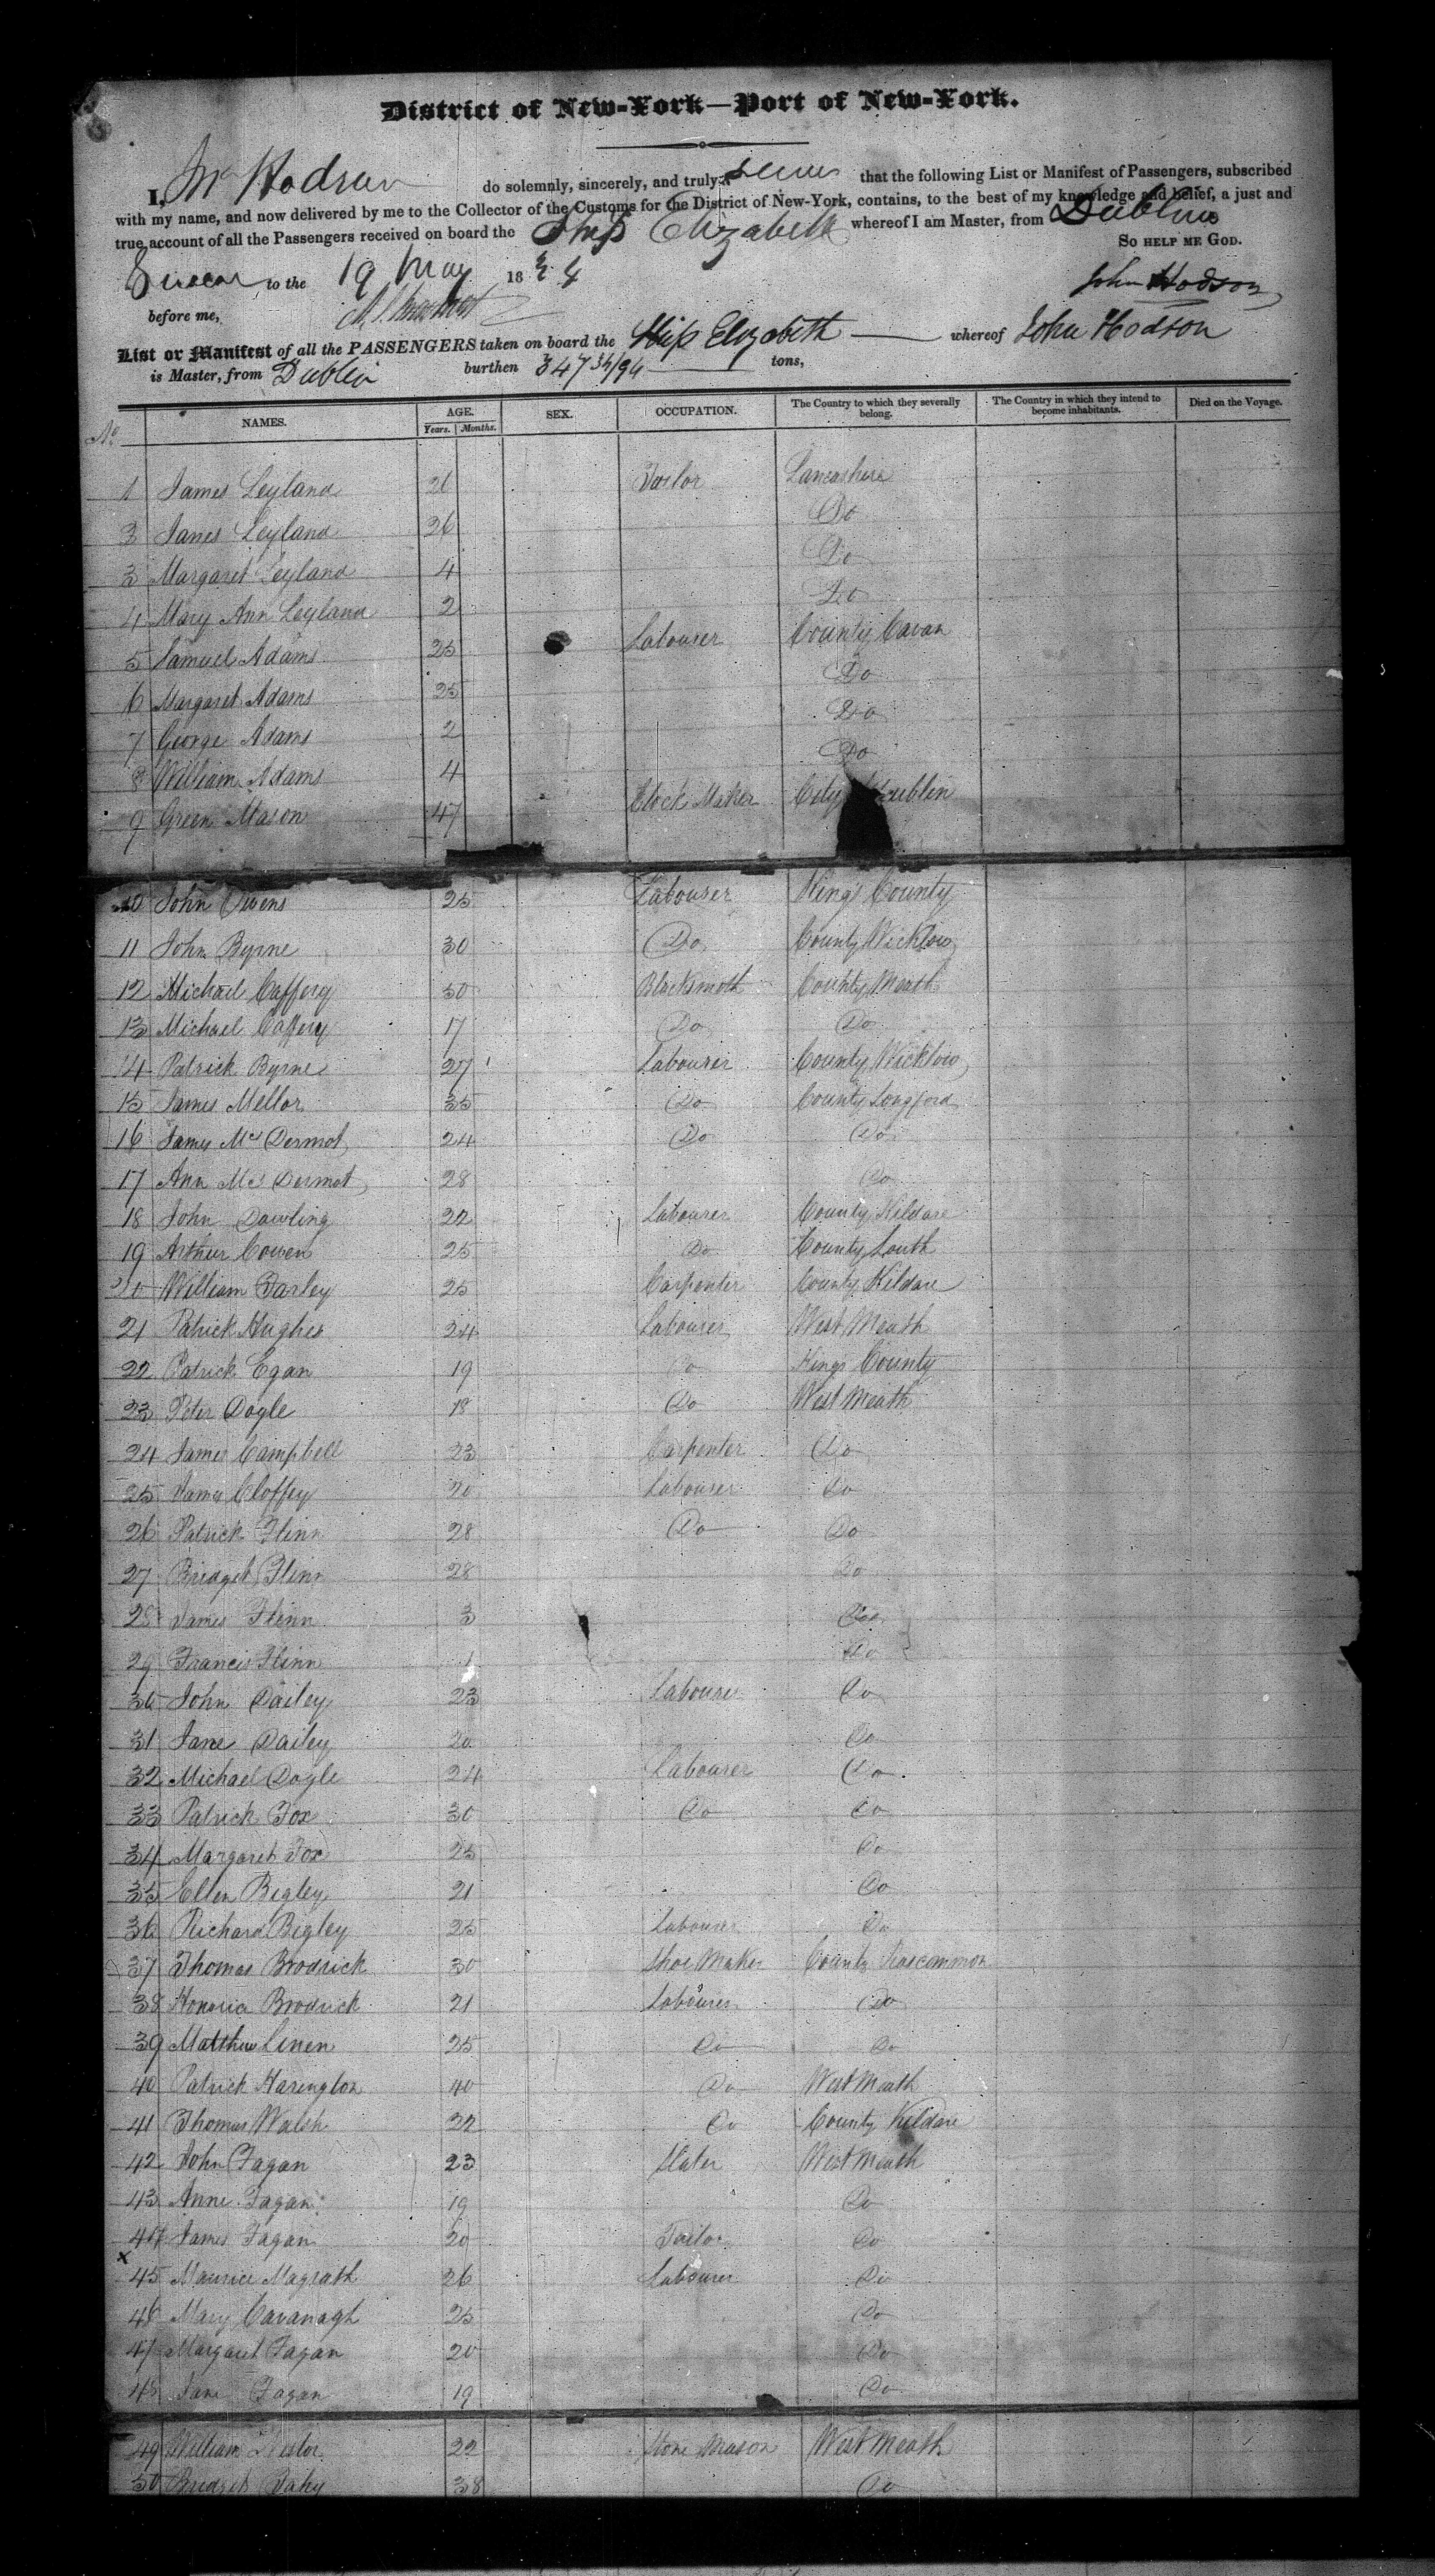 District of New-York—Port of New-York.
I, Jno Hodson do solemnly, sincerely, and truly swear that the following List or Manifest of Passengers, subscribed
with my name, and now delivered by me to the Collector of the Customs for the District of New-York, contains, to the best of my knowledge and belief, a just and
true account of all the Passengers received on board the Ship Elizabeth whereof I am Master, from Dublin
So HELP ME GOD.
Sworn to the 19 May 1834 John Hodson
before me,
List or Manifest of all the PASSENGERS taken on board the Ship Elizabeth whereof John Hodson
is Master, from Dublin burthen 347 34/94 tons,
No NAMES. AGE. Years. Months. SEX. OCCUPATION. The Country to which they severally belong. The Country in which they intend to become inhabitants. Died on the Voyage.
1 James Leyland 21 Tailor Lancashire
3 James Leyland 26 Do
3 Margaret Leyland 4 Do
4 Mary Ann Leyland 2 Do
5 Samuel Adams 25 Labourer County Cavan
6 Margaret Adams 25 Do
7 George Adams 2 Do
8 William Adams 4 Do
9 Green Mason 47 Clock Maker City Dublin
10 John Owens 25 Labourer Kings County
11 John Byrne 30 Do County Wicklow
12 Michael Caffery 50 Blacksmith County Meath
13 Michael Caffery 17 Do Do
14 Patrick Byrne 27 Labourer County Wicklow
15 James Mellor 35 Do County Longford
16 James McDermot 24 Do Do
17 Ann McDermot 28 Do
18 John Dowling 22 Labourer County Kildare
19 Arthur Cowen 25 Do County Louth
20 William Farley 25 Carpenter County Kildare
21 Patrick Hughes 24 Labourer West Meath
22 Patrick Egan 19 Do Kings County
23 Peter Dogle 18 Do West Meath
24 James Campbell 23 Carpenter Do
25 James Cloffey 20 Labourer Do
26 Patrick Flinn 28 Do Do
27 Bridget Flinn 28 Do
28 James Flinn 3 Do
29 Francis Flinn 1 Do
30 John Dailey 23 Labourer Do
31 Jane Dailey 20 Do
32 Michael Dogle 24 Labourer Do
33 Patrick Fox 30 Do Do
34 Margaret Fox 25 Do
35 Ellen Bigley 21 Do
36 Richard Bigley 25 Labourer Do
37 Thomas Brodrick 30 Shoe Maker County Roscommon
38 Honoria Brodrick 21 Labourer Do
39 Matthew Linen 25 Do Do
40 Patrick Harington 40 Do West Meath
41 Thomas Walsh 32 Do County Kildare
42 John Fagan 23 Slater West Meath
43 Anne Fagan 19 Do
44 James Fagan 20 Tailor Do
x 45 Maurice Magrath 26 Labourer Do
46 Mary Cavanagh 25 Do
47 Margaret Fagan 20 Do
48 Jane Fagan 19 Do
49 William 22 Stone Mason West Meath
50 Bridget Fahy 38 Do